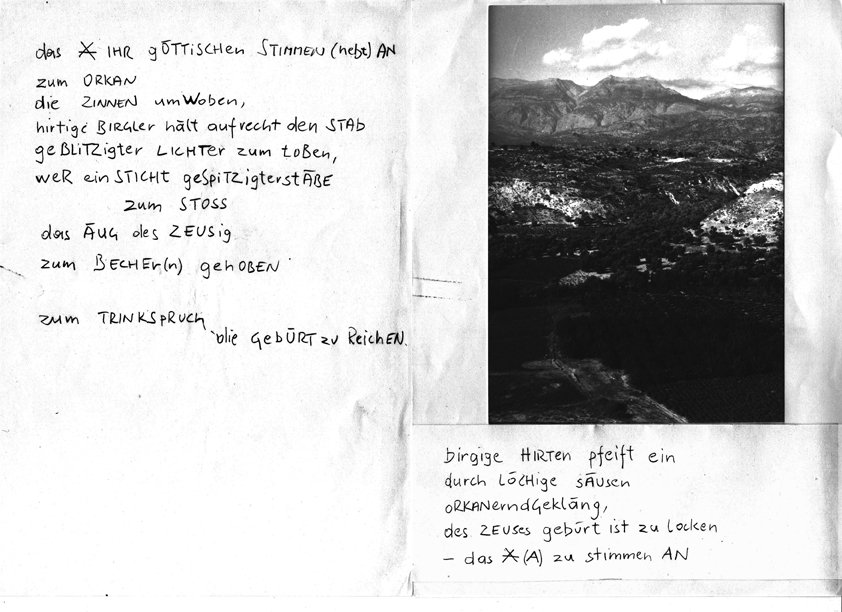 das X IHR gÖTTiSCHEN STiMMEN (hebt) AN
zum ORKAN
die ZINNEN umWoben,
hirtige BIRGLER hält aufrecht den STAb
geBLiTZigter LICHTer zum toBen,
weR ein STICHT geSpiTZigterstÄBE
zum STOSS
das ÄUG des ZEUSig
zum BECHEr(n) gehOBEN
zum TRINKSpRUCH
die GebÜRT zu ReichEN.
birgige HIRTEN pfeift ein
durch LÖCHige SÄUSEN
oRKANerndGekläng,
des ZEUSes gebürt ist zu locken
– das X (A) zu stimmen AN